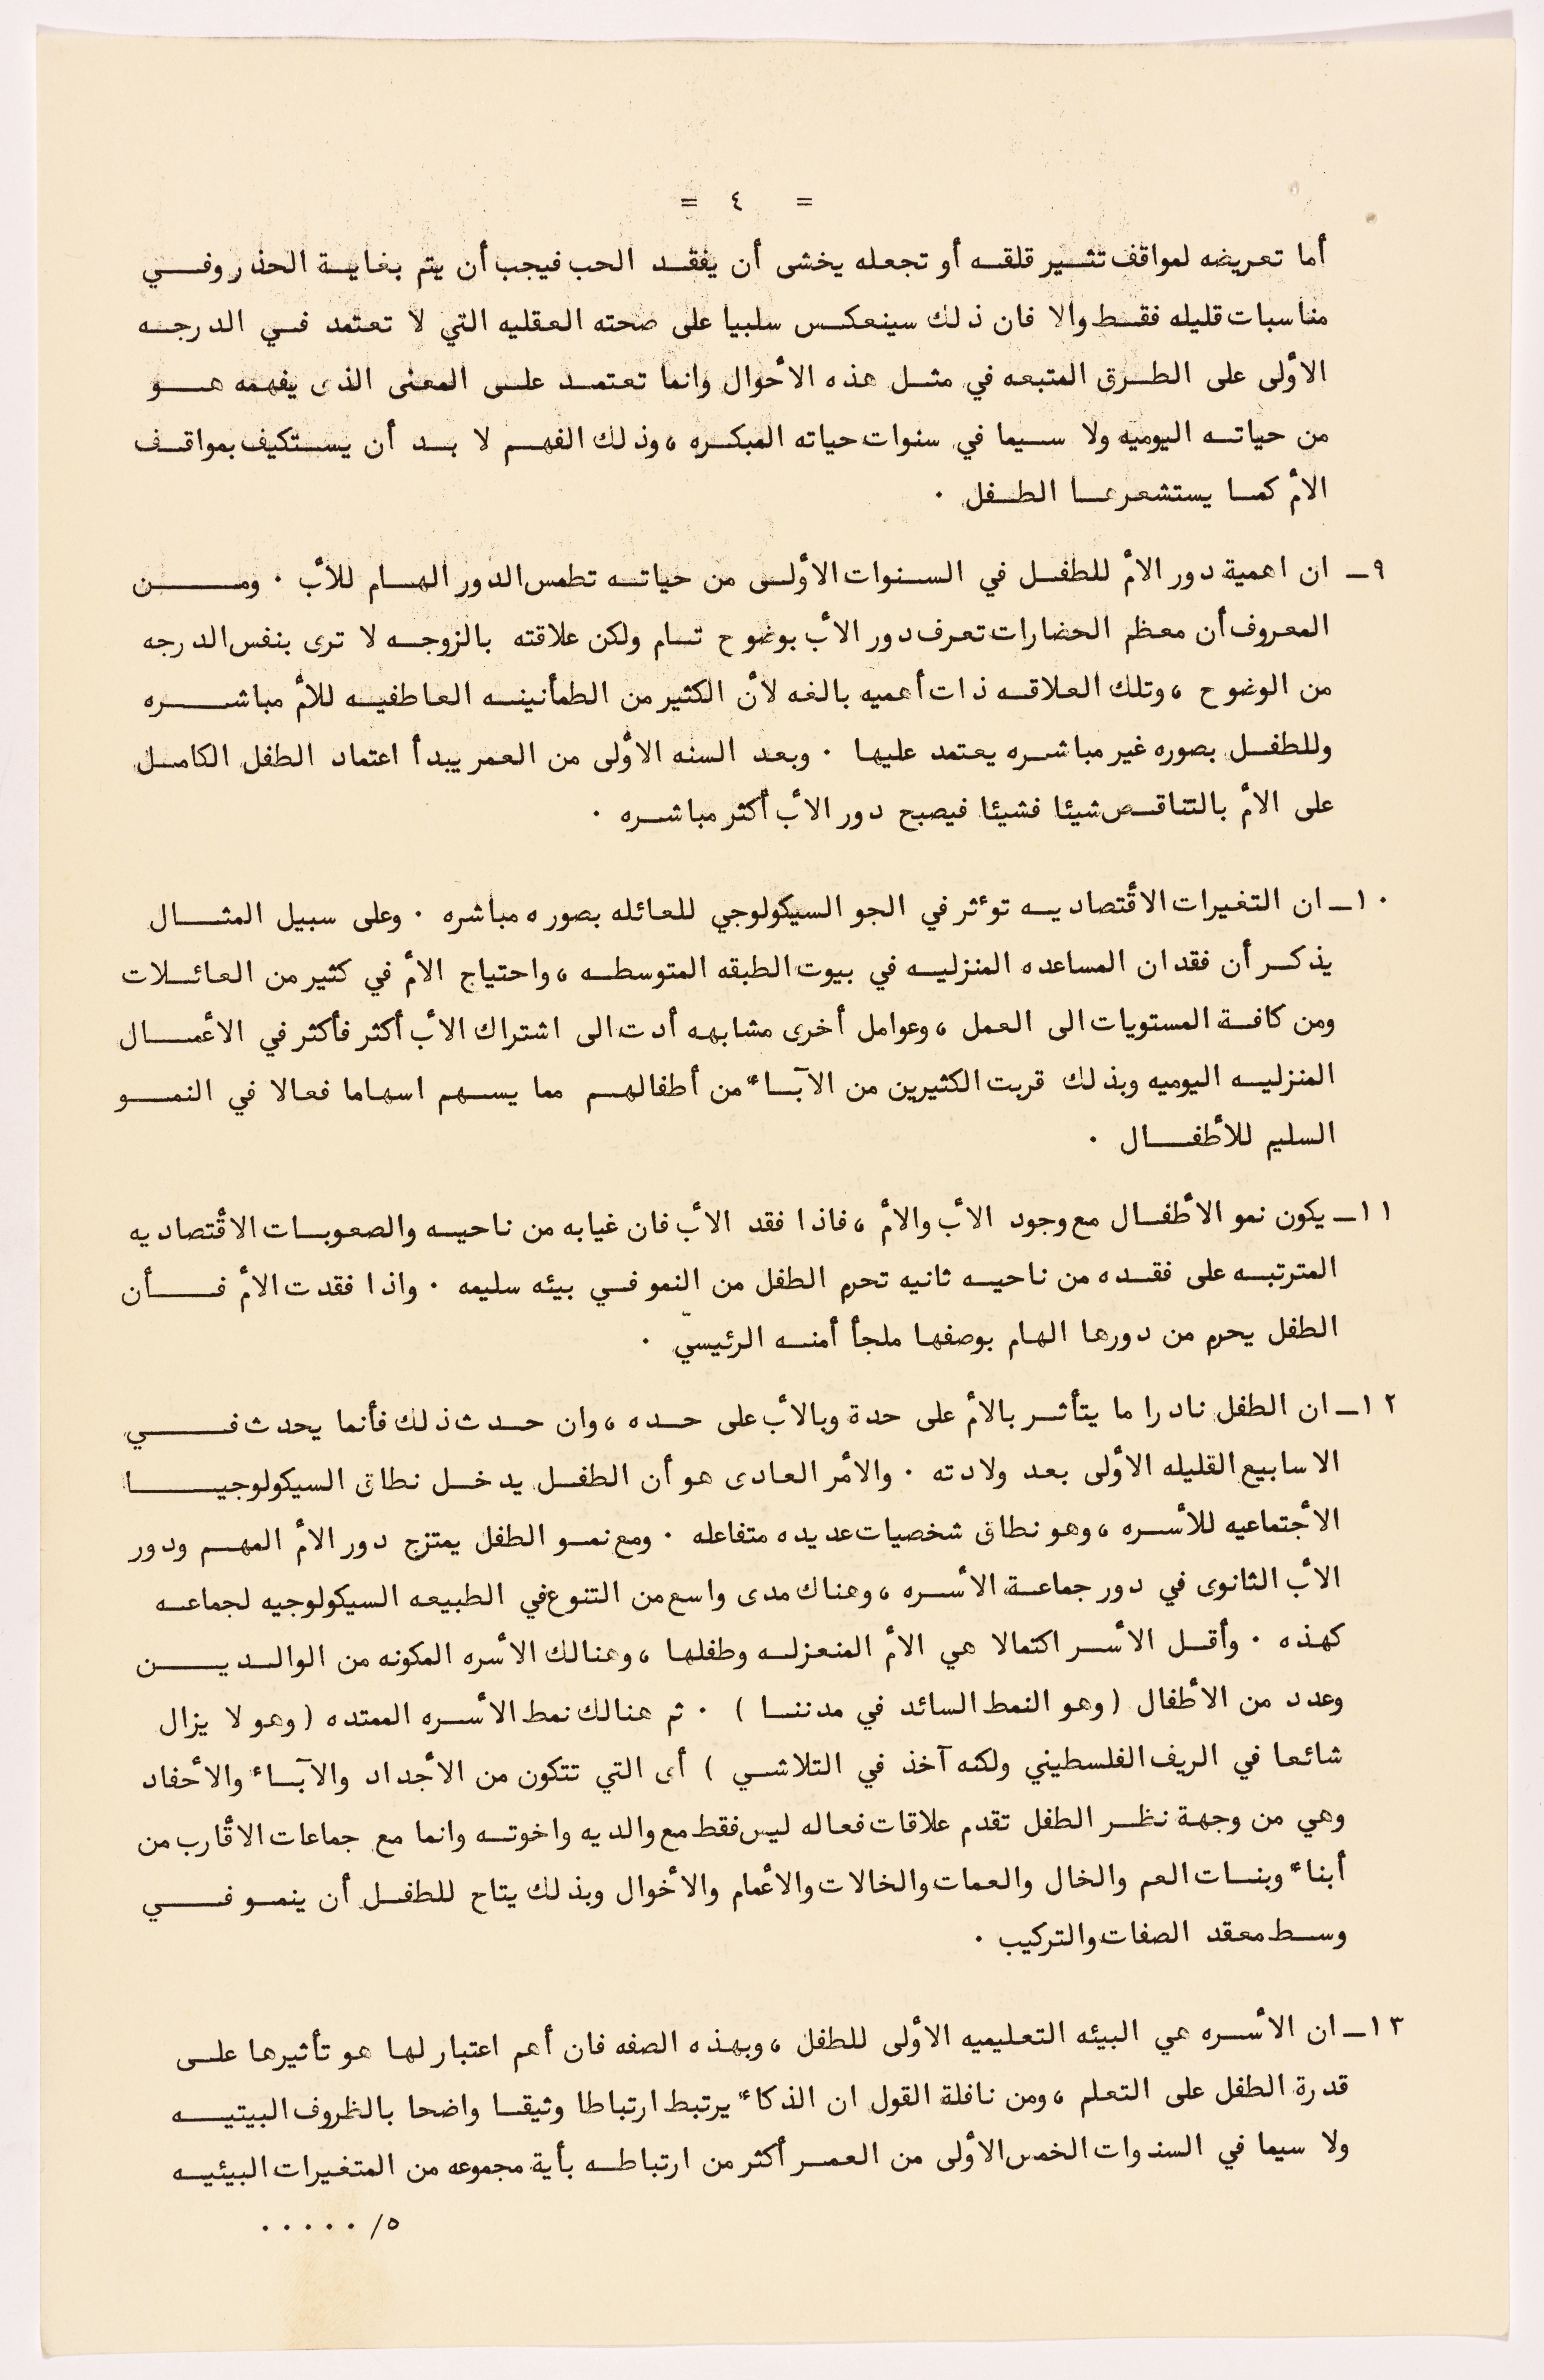 = ٤ =
أما تعريضه لمواقف تثير قلقه أو تجعله يخشى أن يفقد الحب فيجب أن يتم بغاية الحذر وفي
مناسبات قليله فقط والا فان ذلك سينعكس سلبيا على صحته العقليه التي لا تعتمد في الدرجه
الأولى على الطرق المتبعه في مثل هذه الأحوال وانما تعتمد على المعنى الذى يفهمه هو
من حياته اليوميه ولا سيما في سنوات حياته المبكره ، وذلك الفهم لا بد أن يستكيف بمواقف
الأم كما يستشعرها الطفل .
٩ـ ان اهمية دور الأم للطفل في السنوات الأولى من حياته تطمس الدور الهام للأب . ومن
المعروف أن معظم الحضارات تعرف دور الأب بوضوح تام ولكن علاقته بالزوجه لا ترى بنفس الدرجه
من الوضوح ، وتلك العلاقه ذات أهميه بالغه لأن الكثير من الطمأنينه العاطفيه للأم مباشره
وللطفل بصوره غير مباشره يعتمد عليها . وبعد السنه الأولى من العمر يبدأ اعتماد الطفل الكامل
على الأم بالتناقص شيئا فشيئا فيصبح دور الأب أكثر مباشره .
١٠ـ ان التغيرات الأقتصاديه توءثر في الجو السيكولوجي للعائله بصوره مباشره . وعلى سبيل المثال
يذكر أن فقدان المساعده المنزليه في بيوت الطبقه المتوسطه ، واحتياج الأم في كثير من العائلات
ومن كافة المستويات الى العمل ، وعوامل أخرى مشابهه أدت الى اشتراك الأب أكثر فأكثر في الأعمال
المنزليه اليوميه وبذلك قربت الكثيرين من الآباء من أطفالهم مما يسهم اسهاما فعالا في النمو
السليم للأطفال .
١١ـ يكون نمو الأطفال مع وجود الأب والأم ، فاذا فقد الأب فان غيابه من ناحيه والصعوبات الاقتصاديه
المترتبه على فقده من ناحيه ثانيه تحرم الطفل من النمو في بيئه سليمه . واذا فقدت الأم فأن
الطفل يحرم من دورها الهام بوصفها ملجأ أمنه الرئيسيّ .
١٢ـ ان الطفل نادرا ما يتأثر بالأم على حدة وبالأب على حده ، وان حدث ذلك فأنما يحدث في
الاسابيع القليله الأولى بعد ولادته . والأمر العادى هو أن الطفل يدخل نطاق السيكولوجيا
الأجتماعيه للأسره ، وهو نطاق شخصيات عديده متفاعله . ومع نمو الطفل يمتزج دور الأم المهم ودور
الأب الثانوى في دور جماعة الأسره ، وهناك مدى واسع من التنوع في الطبيعه السيكولوجيه لجماعه
كهذه . وأقل الأسر اكتمالا هي الأم المنعزله وطفلها ، وهنالك الأسره المكونه من الوالدين
وعدد من الأطفال ( وهو النمط السائد في مدننا ) . ثم هنالك نمط الأسره الممتده ( وهو لا يزال
شائعا في الريف الفلسطيني ولكنه آخذ في التلاشي ) أى التي تتكون من الأجداد والآباء والأحفاد
وهي من وجهة نظر الطفل تقدم علاقات فعاله ليس فقط مع والديه واخوته وانما مع جماعات الأقارب من
أبناء وبنات العم والخال والعمات والخالات والأعمام والأخوال وبذلك يتاح للطفل أن ينمو في
وسط معقد الصفات والتركيب .
١٣ـ ان الأسره هي البيئه التعليميه الأولى للطفل ، وبهذه الصفه فان أهم اعتبار لها هو تأثيرها على
قدرة الطفل على التعلم ، ومن نافلة القول ان الذكاء يرتبط ارتباطا وثيقا واضحا بالظروف البيتيه
ولا سيما في السنوات الخمس الأولى من العمر أكثر من ارتباطه بأية مجموعه من المتغيرات البيئيه
٥/ . . . . .